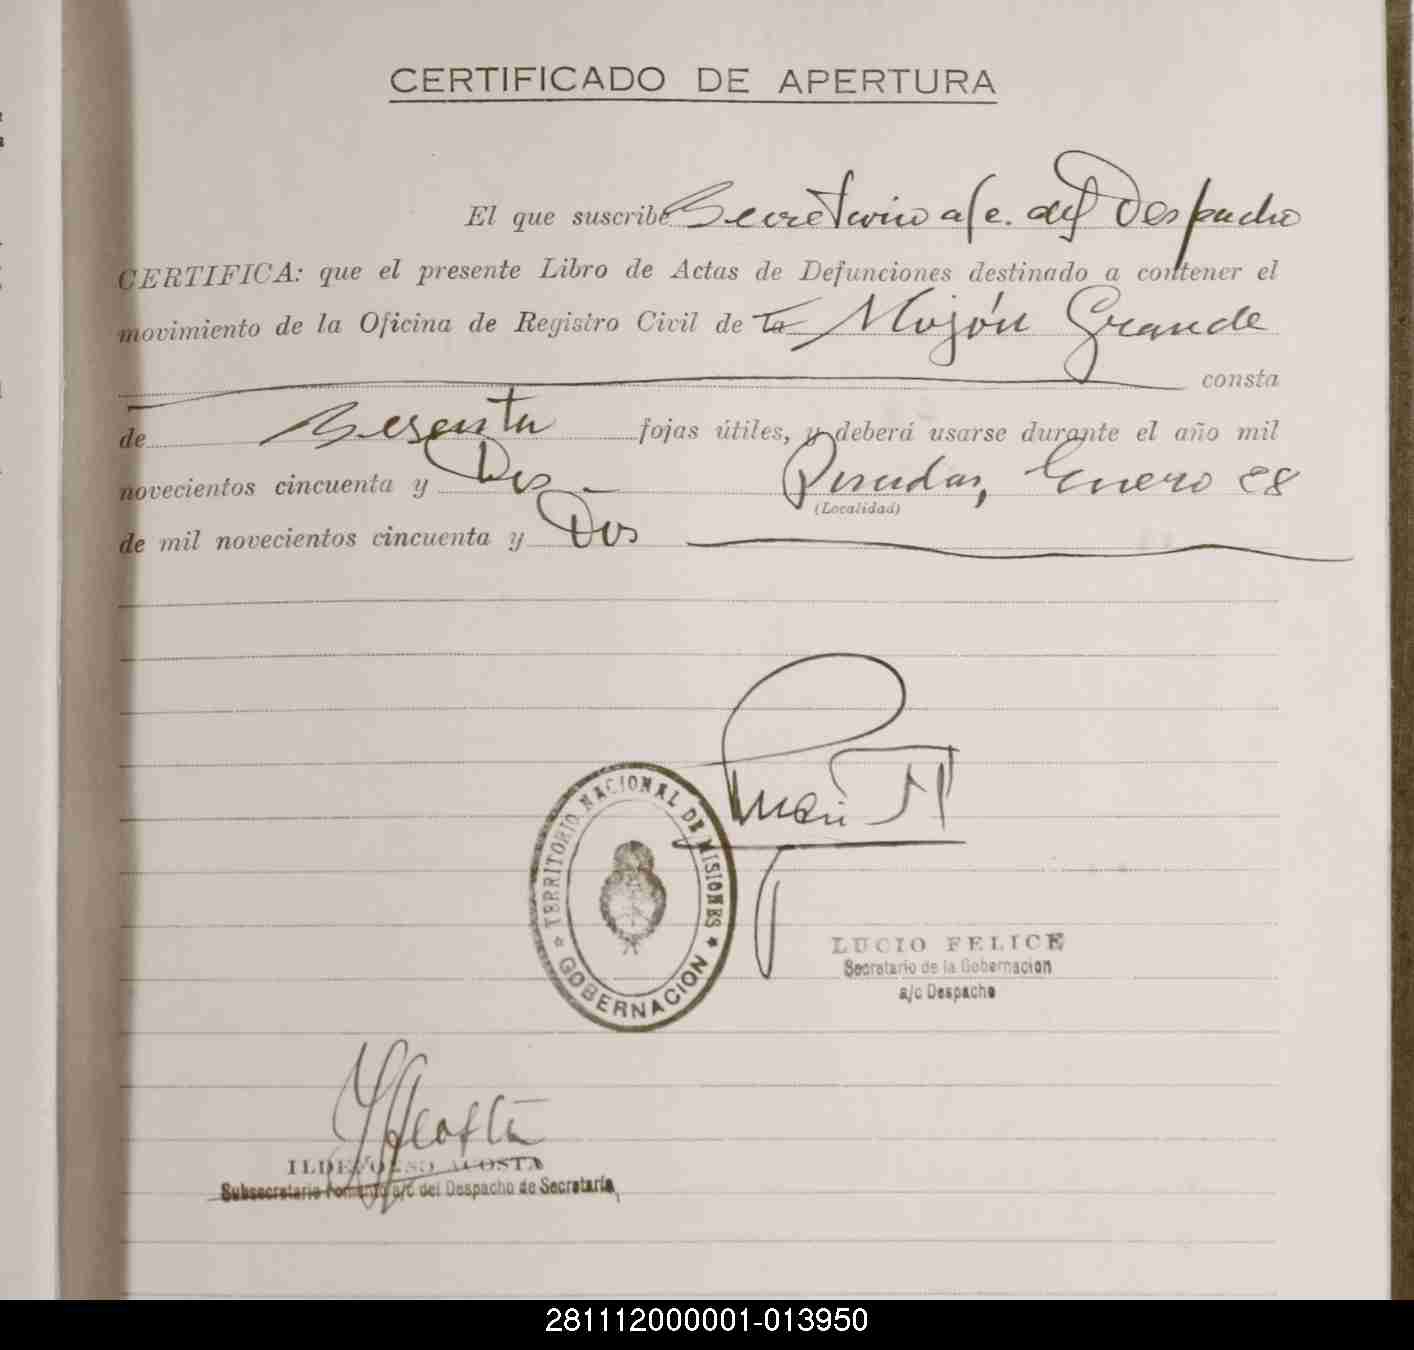 CERTIFICADO DE APERTURA
El que suscribe Secretario a/c. del Despacho
CERTIFICA: que el presente Libro de Actas de Defunciones destinado a contener el
movimiento de la Oficina de Registro Civil de la Mojón Grande
consta
de Sesenta fojas útiles, y deberá usarse durante el año mil
novecientos cincuenta y Dos Posadas, Enero 28
(Localidad)
de mil novecientos cincuenta y Dos
TERRITORIO NACIONAL DE MISIONES
GOBERNACION
LUCIO FELICE
Secretario de la Gobernacion
a/c Despacho
ILDEFONSO ACOSTA
Subsecretario Fomento a/c del Despacho de Secretaría
281112000001-013950